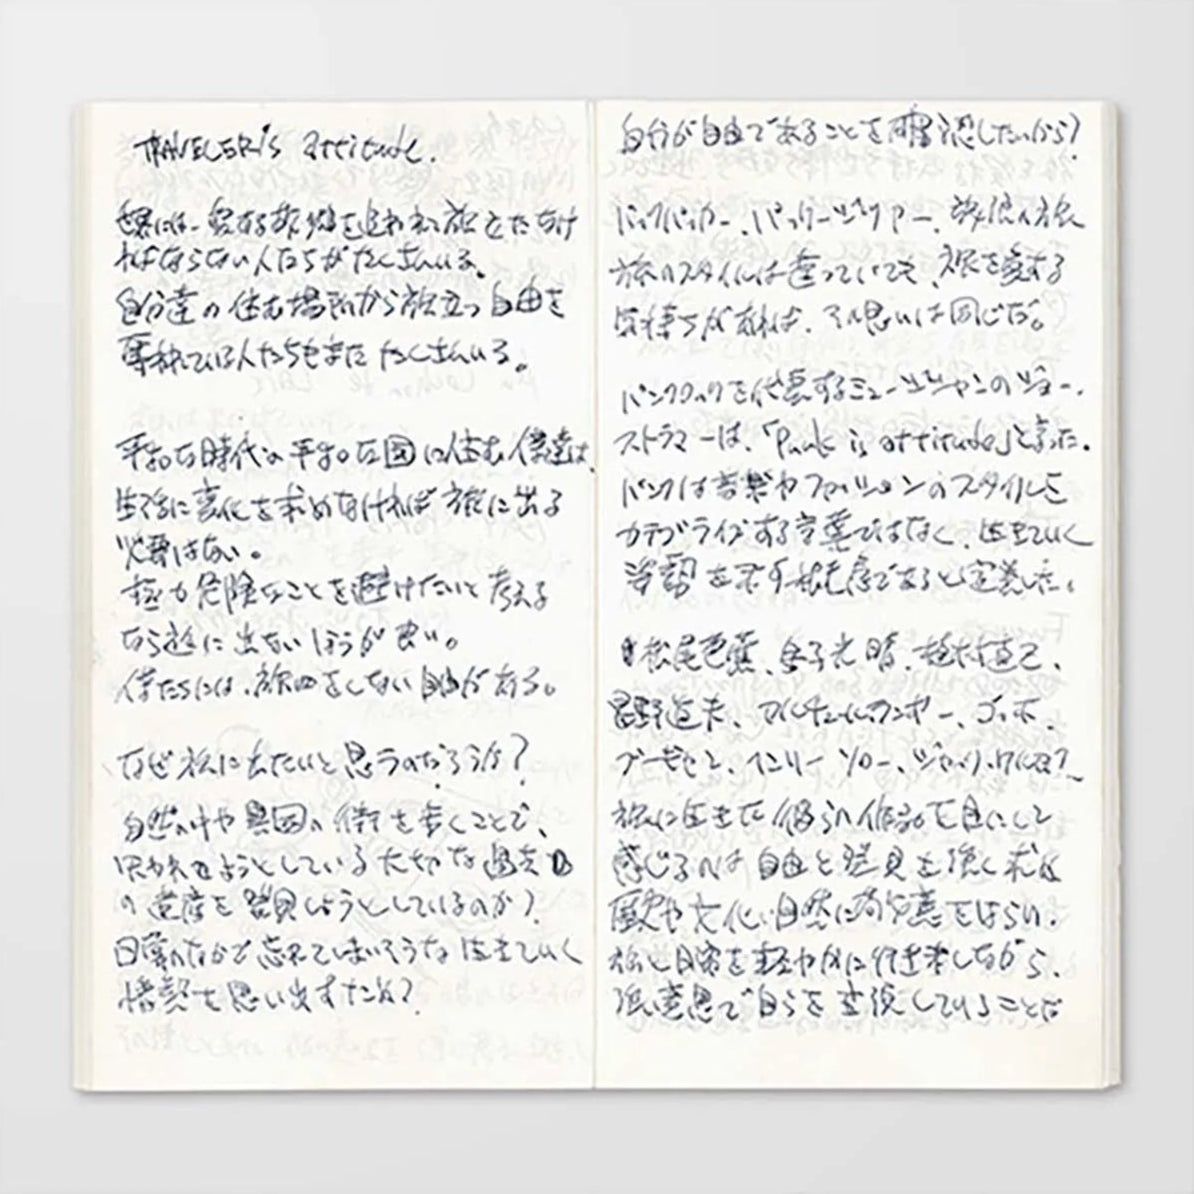 TRAVELER'S attitude.
世界には、愛する故郷を追われて旅をしなけ
ればならない人たちがたくさんいる。
自分達の住む場所から旅立つ自由を
奪われている人たちもまた たくさんいる。
平和な時代の平和な国に住む僕達は、
生活に変化を求めなければ旅に出る
必要はない。
極力危険なことを避けたいと考える
なら旅に出ないほうが良い。
僕たちには、旅をしない自由がある。
なぜ旅に出たいと思うのだろうか？
自然の中や異国の街を歩くことで、
ようとしている大切な過去
の遺産を発見しようとしているのか？
日常のなかで忘れてしまいそうな生きていく
情熱を思い出すため？
自分が自由であることを確認したいから？
バックパッカー、パッケージツアー、
旅のスタイルは違っていても、旅を愛する
気持ちがあれば、その思いは同じだ。
パンクロックを代表するミュージシャンのジョー・
ストラマーは、「Punk is attitude」と言った。
パンクは音楽やファッションのスタイルを
カテゴライズする言葉ではなく、生きていく
姿勢を示す態度であると定義した。
松尾芭蕉、金子光晴、植村直己、
星野道夫、アルチュール・ランボー、ゴッホ、
ゴーギャン、ヘンリー・ソロー、ジャック・ケルアック
旅に生きた彼らの作品を目にして
感じるのは自由と発見を強く求め
歴史や文化、自然に敬意をはらい、
旅と日常を軽やかに行き来しながら、
強い意思で自らを表現していることだ